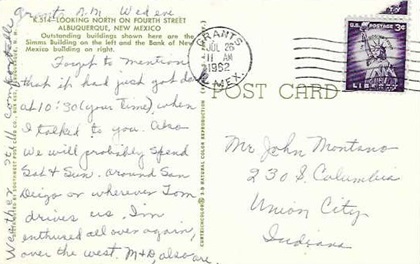 Grants, N.M. Wed eve
K.531—LOOKING NORTH ON FOURTH STREET
ALBUQUERQUE, NEW MEXICO
Outstanding buildings shown here are the
Simms Building on the left and the Bank of New
Mexico building on right.
Forgot to mention
that it had just got dark
at 10:30 (your time), when
I talked to you. Also
We will probably spend
Sat & Sun. around San
Deigo or wherever Tom
drives us. I'm
enthused all over again,
over the west. M & D, also are.
Weather still comfortable
GRANTS
JUL 26
11 AM
1962
N. MEX.
U.S. POSTAGE
3¢
LIBERTY
POST CARD
Mr John Montano
230 S. Columbia
Union City
Indiana